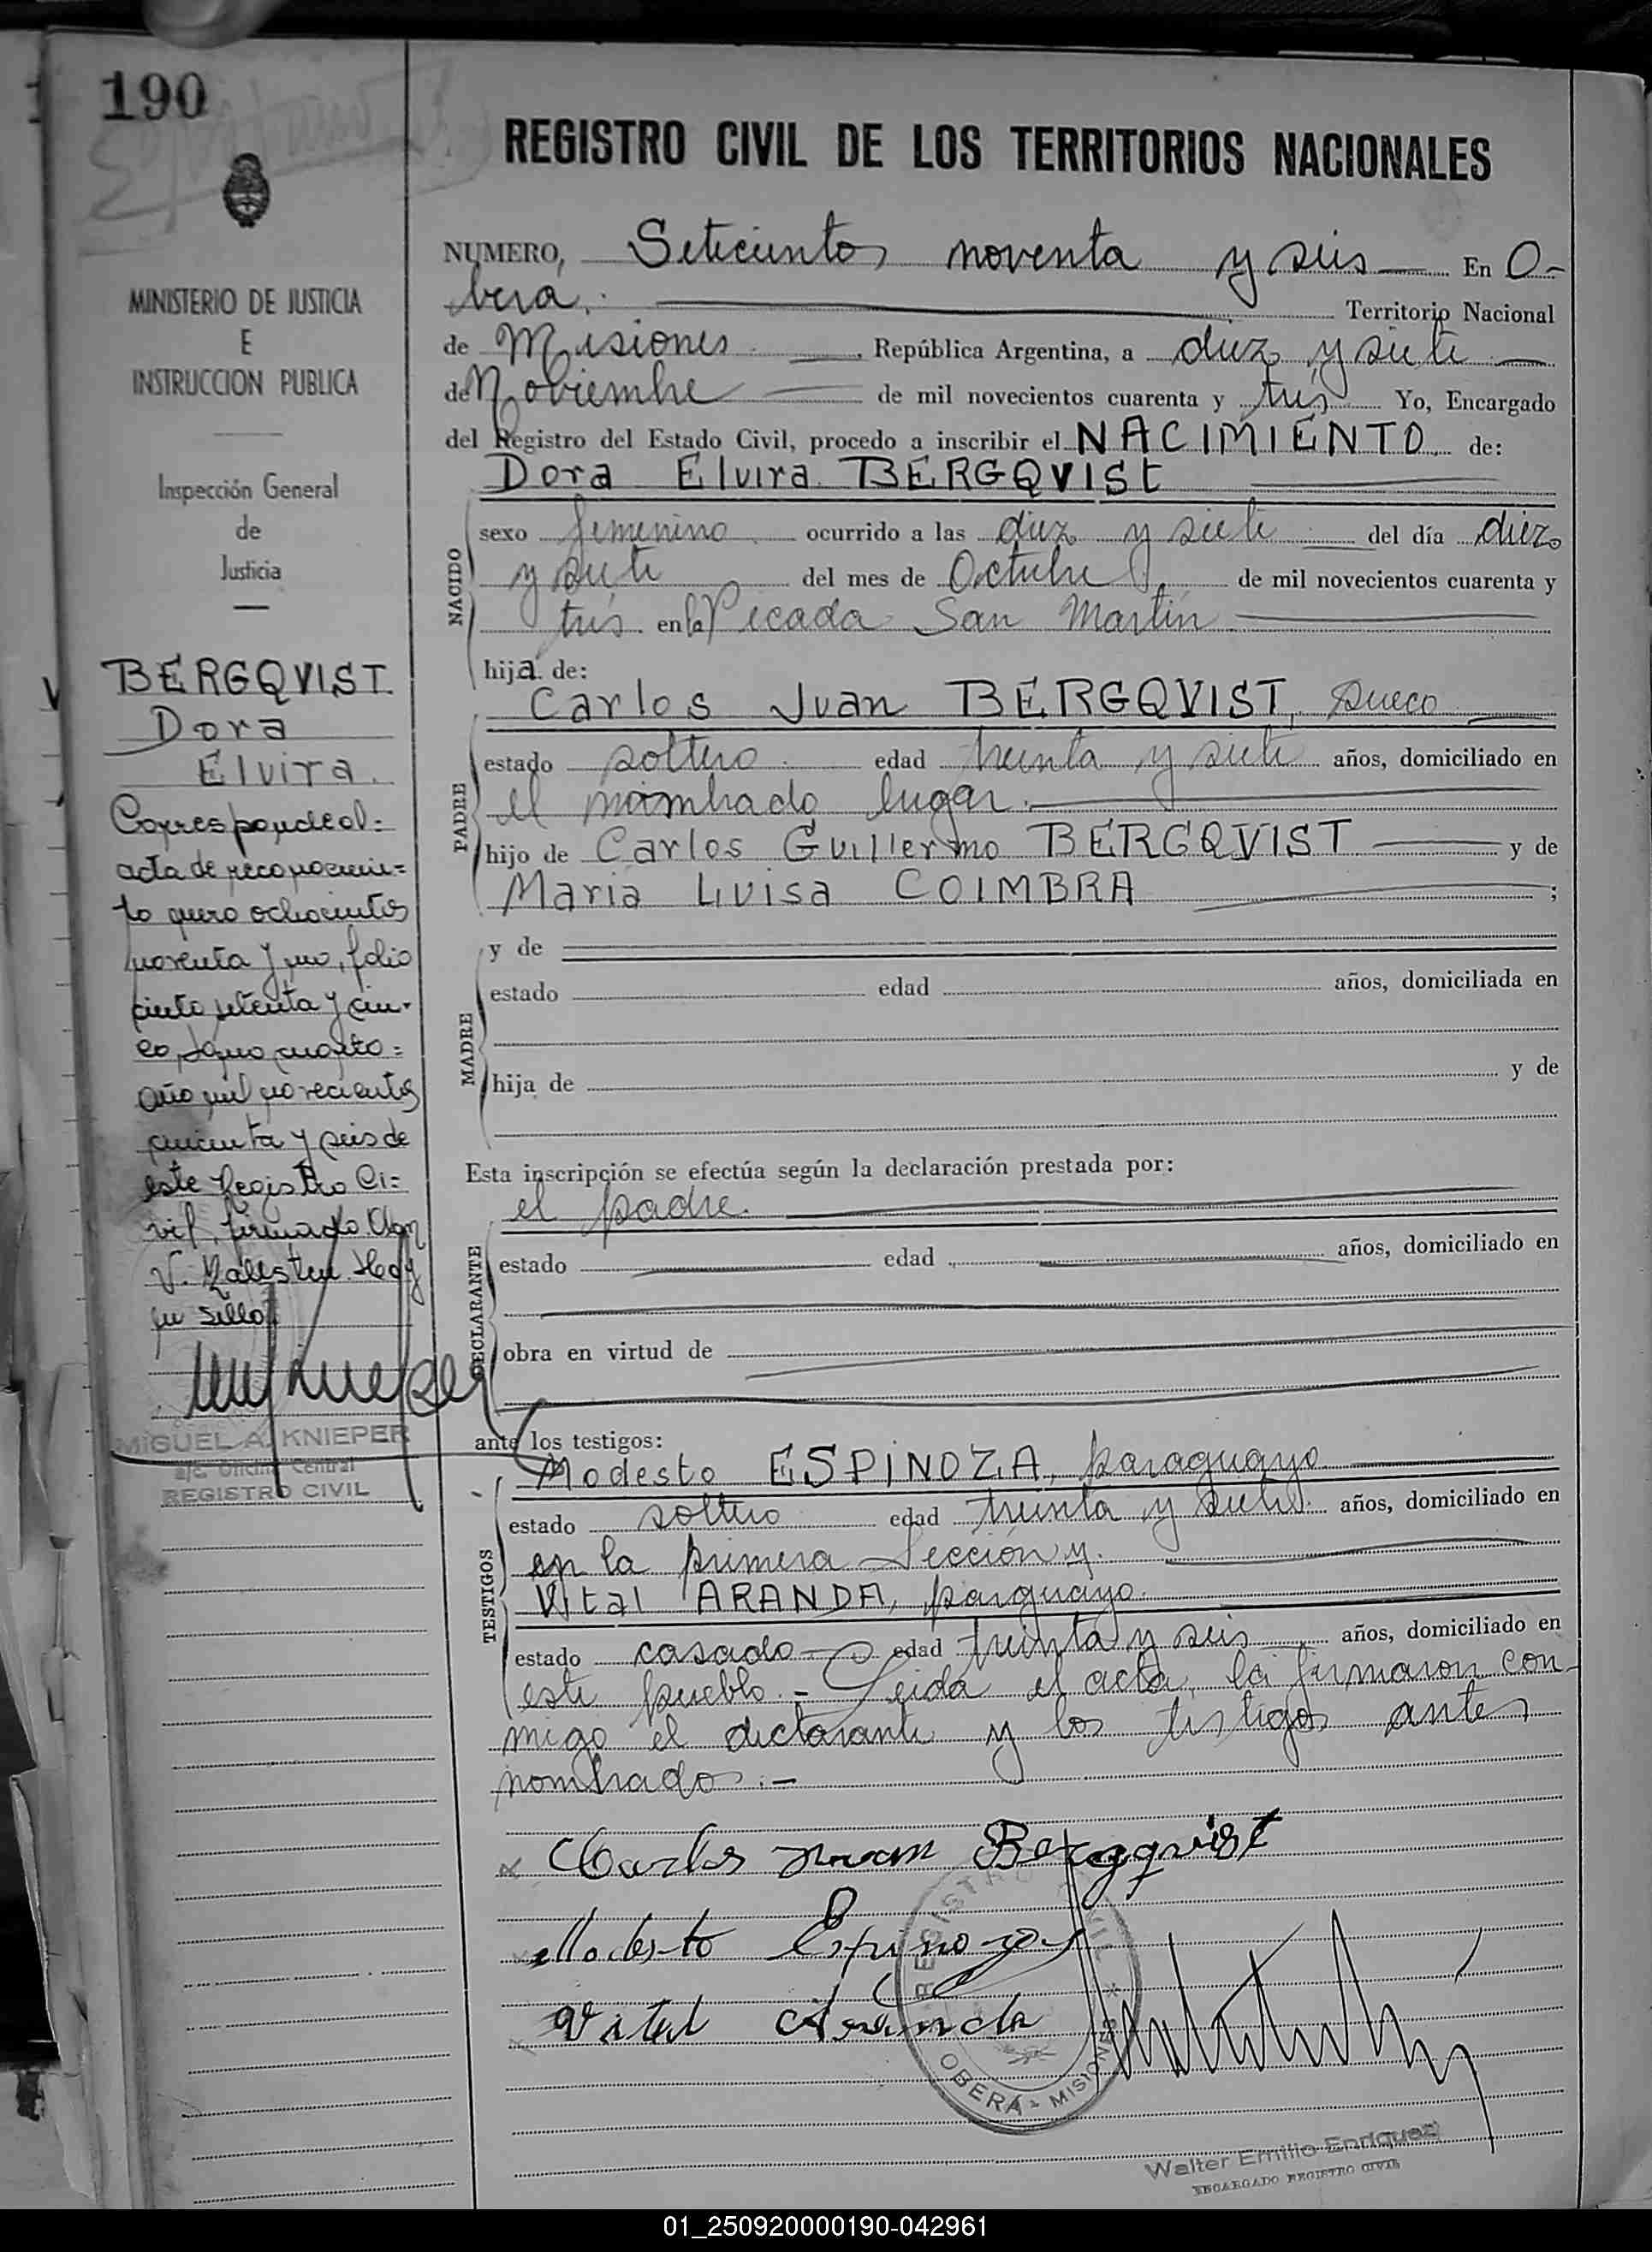 190
REGISTRO CIVIL DE LOS TERRITORIOS NACIONALES
MINISTERIO DE JUSTICIA
E
INSTRUCCION PUBLICA
Inspección General
de
Justicia
BERGQVIST
Dora
Elvira.
Corresponde al=
acta de reconocimien=
to ochocientos
noventa y uno, folio
ciento setenta y cin-
co, tomo cuarto=
año mil novecientos
cincuenta y seis de
este Registro Ci=
vil, firmado
V. Hay
un sello
MIGUEL A. KNIEPER
a/c. Oficina Central
REGISTRO CIVIL
NUMERO, Setecientos noventa y seis En O-
bera. Territorio Nacional
de Misiones, República Argentina, a diez y siete
de Noviembre de mil novecientos cuarenta y tres Yo, Encargado
del Registro del Estado Civil, procedo a inscribir el NACIMIENTO de:
Dora Elvira BERGQVISt
NACIDO
sexo femenino ocurrido a las diez y siete del día diez
y siete del mes de Octubre de mil novecientos cuarenta y
tres en la Picada San Martín
hija de:
Carlos Juan BERGQVIST, sueco
PADRE
estado soltero edad treinta y siete años, domiciliado en
el nombrado lugar.
hijo de Carlos Guillermo BERGQVIST y de
Maria Luisa COIMBRA ;
MADRE
y de
estado edad años, domiciliada en
hija de y de
Esta inscripción se efectúa según la declaración prestada por:
el padre.
DECLARANTE
estado edad años, domiciliado en
obra en virtud de
ante los testigos:
Modesto ESPINOZA, paraguayo
TESTIGOS
estado soltero edad treinta y siete años, domiciliado en
en la primera Sección y.
Vital ARANDA, paraguayo.
estado casado edad treinta y seis años, domiciliado en
este pueblo.- Leida el acta, la firmaron con-
migo el declarante y los testigos antes
nombrados.-
Carlos Juan Bergqvist
Modesto Espinoza
Vital Aranda
REGISTRO CIVIL
OBERÁ - MISIONES
Walter Emilio Enriquez
ENCARGADO REGISTRO CIVIL
01_250920000190-042961